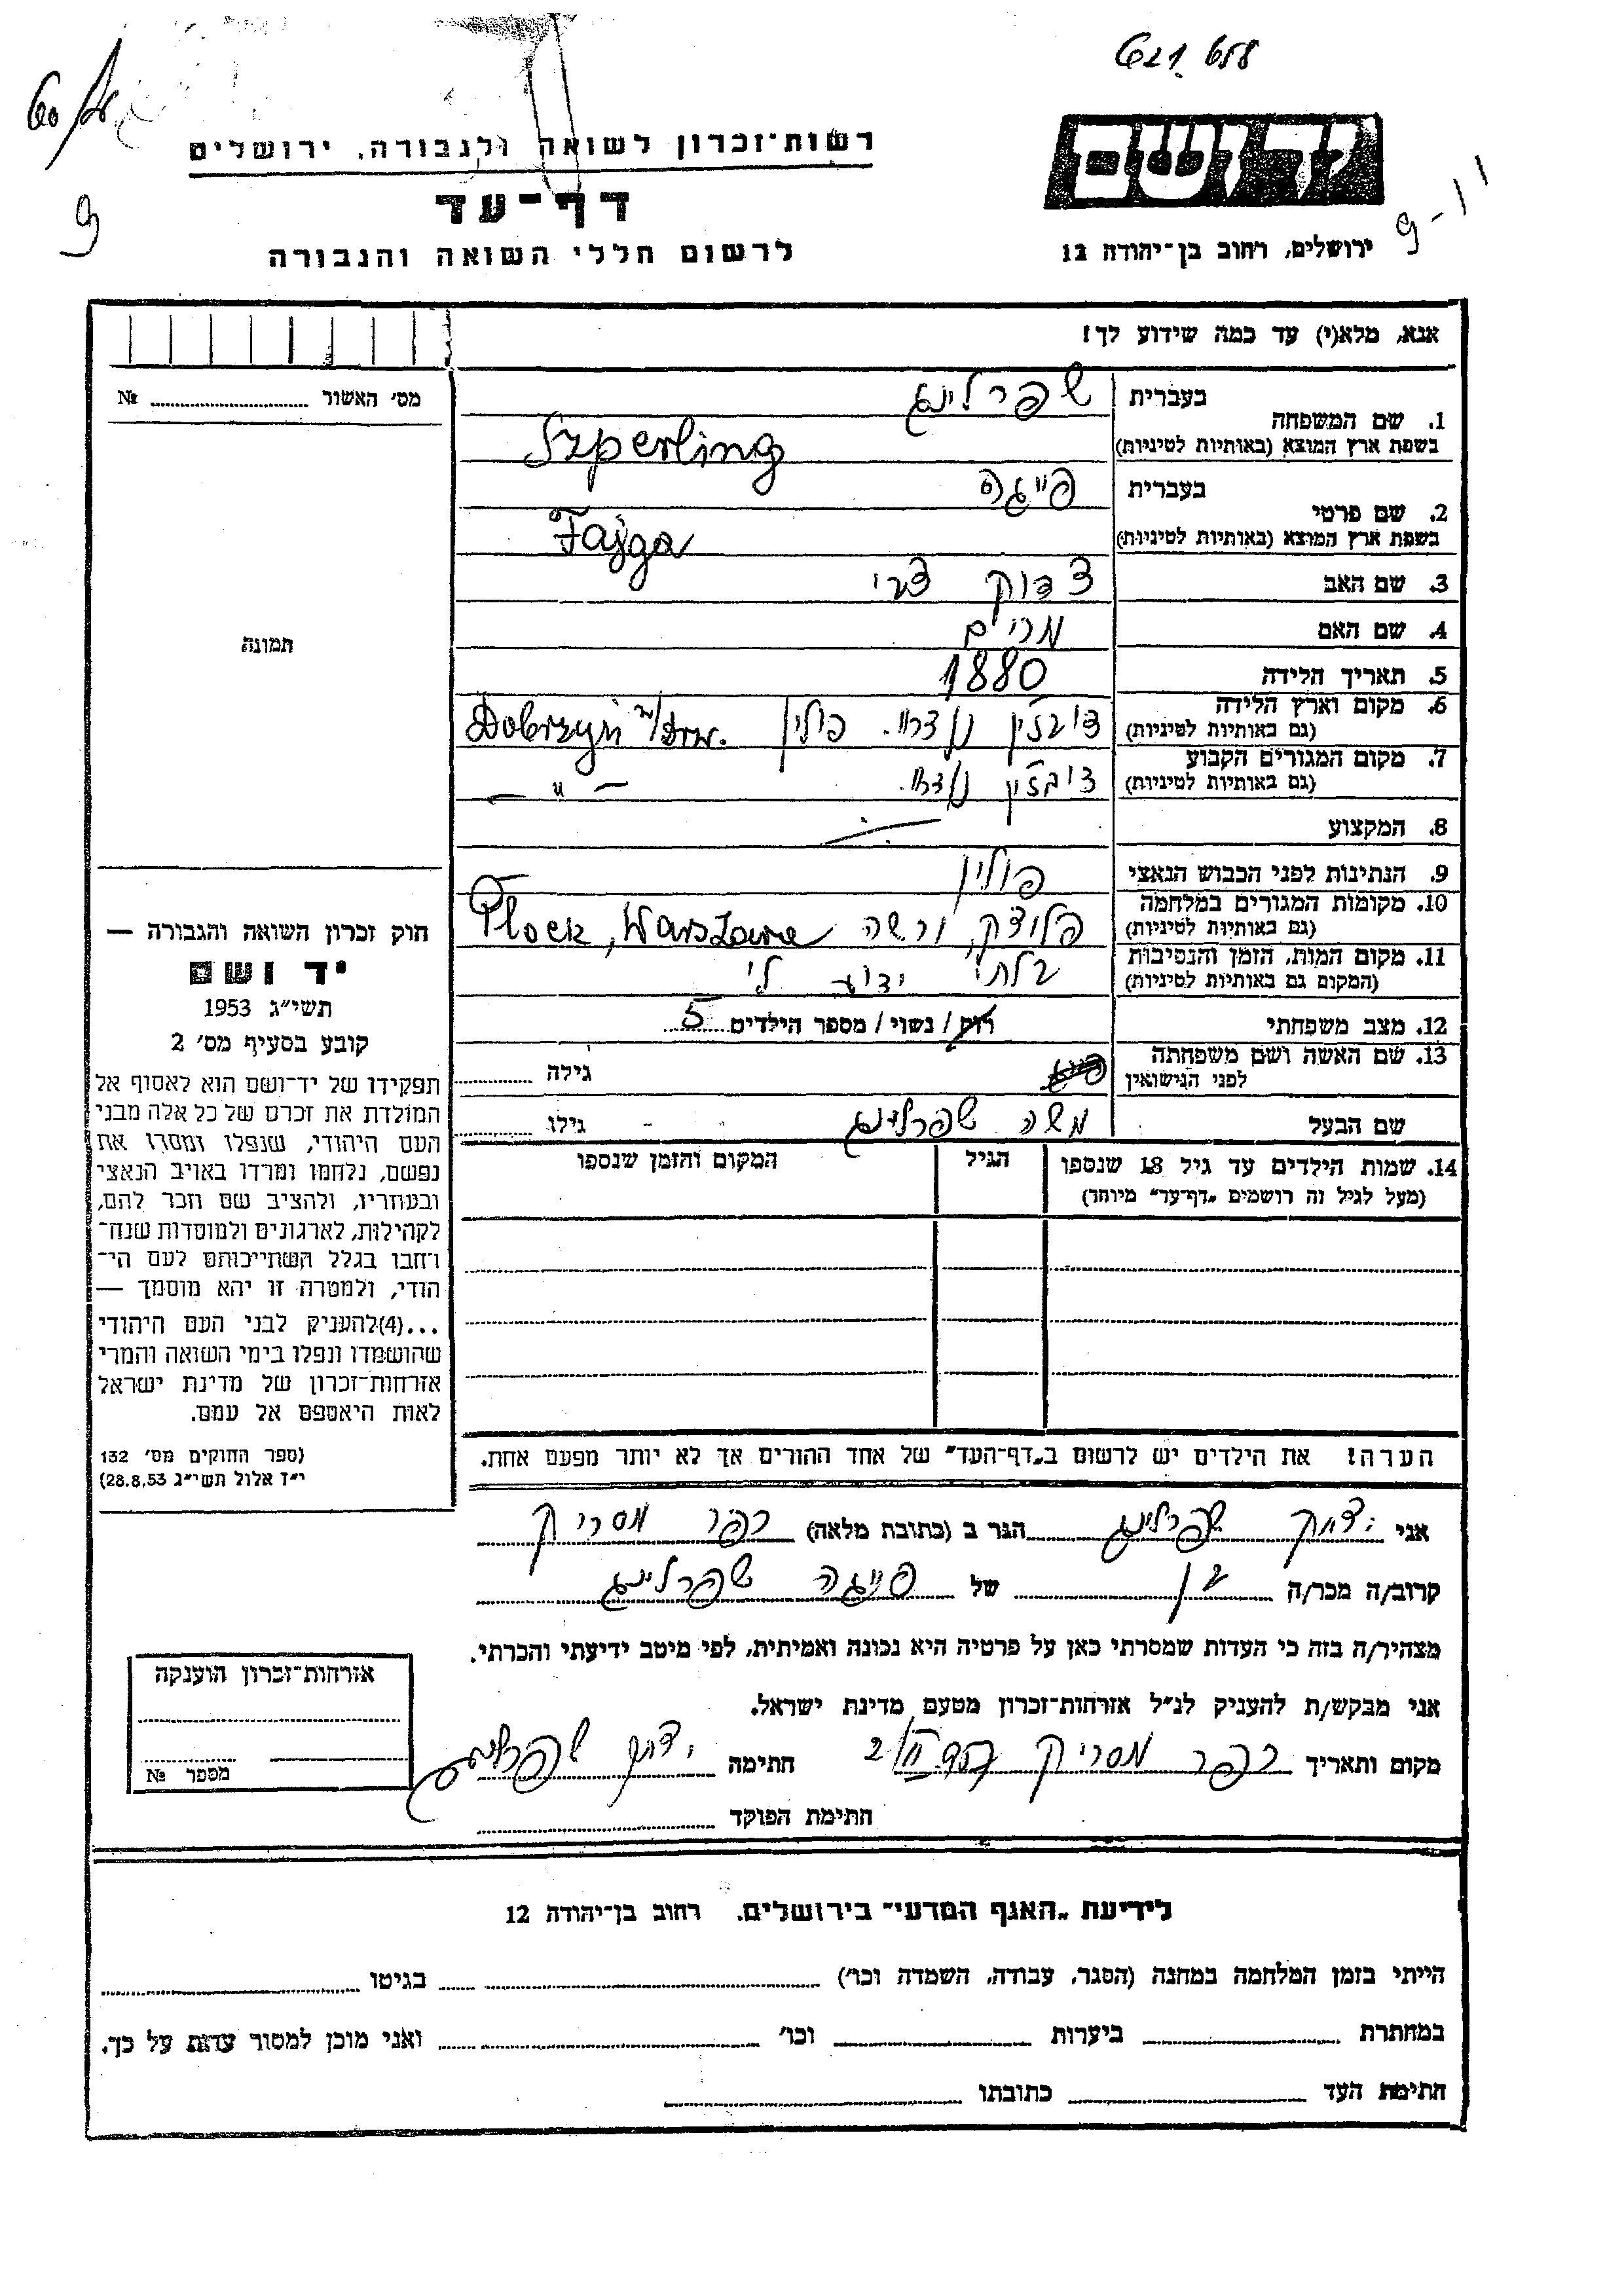 621.658
60/
רשות־זכרון לשואה ולגבורה, ירושלים
ידושם
דף־עד
9
9 - 11
ירושלים, רחוב בן־יהודה 12
לרשום חללי השואה והגבורה
אנא, מלא(י) עד כמה שידוע לך!
מס׳ האשור №
בעברית שפרלינג
1. שם המשפחה
בשפת ארץ המוצא (באותיות לטיניות) Szperling
בעברית פייגה
2. שם פרטי
בשפת ארץ המוצא (באותיות לטיניות) Fajga
3. שם האב צדוק צבי
4. שם האם מרים
תמונה
5. תאריך הלידה 1880
6. מקום וארץ הלידה
(גם באותיות לטיניות) פולין Dobrzyń n/Drw.
7. מקום המגורים הקבוע
(גם באותיות לטיניות) — " —
8. המקצוע
9. הנתינות לפני הכבוש הנאצי פולין
10. מקומות המגורים במלחמה
(גם באותיות לטיניות) פלוצק, ורשה Plock, Warszawa
11. מקום המות, הזמן והנסיבות
(המקום גם באותיות לטיניות) בלתי ידוע לי
12. מצב משפחתי רווק / נשוי / מספר הילדים 5
13. שם האשה ושם משפחתה
לפני הנישואין גילה
שם הבעל משה שפרלינג גילו
14. שמות הילדים עד גיל 18 שנספו
(מעל לגיל זה רושמים „דף־עד״ מיוחד)
הגיל
המקום והזמן שנספו
חוק זכרון השואה והגבורה —
יד ושם
תשי״ג 1953
קובע בסעיף מס׳ 2
תפקידו של יד־ושם הוא לאסוף אל
המולדת את זכרם של כל אלה מבני
העם היהודי, שנפלו ומסרו את
נפשם, נלחמו ומרדו באויב הנאצי
ובעוזריו, ולהציב שם וזכר להם,
לקהילות, לארגונים ולמוסדות שנח־
רחבו בגלל השתייכותם לעם הי־
הודי, ולמטרה זו יהא מוסמך —
...(4)להעניק לבני העם היהודי
שהושמדו ונפלו בימי השואה והמרי
אזרחות־זכרון של מדינת ישראל
לאות היאספם אל עמם.
(ספר החוקים מס׳ 132
י״ז אלול תשי״ג 28.8.53)
הערה! את הילדים יש לרשום ב„דף־העד״ של אחד ההורים אך לא יותר מפעם אחת.
אני שפרלינג הגר ב (כתובת מלאה) כפר מסריק
קרוב/ה מכר/ה בן של פייגה שפרלינג
מצהיר/ה בזה כי העדות שמסרתי כאן על פרטיה היא נכונה ואמיתית, לפי מיטב ידיעתי והכרתי.
אני מבקש/ת להעניק לנ״ל אזרחות־זכרון מטעם מדינת ישראל.
מקום ותאריך כפר מסריק חתימה שפרלינג
חתימת הפוקד
אזרחות־זכרון הוענקה
מספר №
לידיעת „האגף המדעי״ בירושלים, רחוב בן־יהודה 12
הייתי בזמן המלחמה במחנה (הסגר, עבודה, השמדה וכו׳) בגיטו
במחתרת ביערות וכו׳ ואני מוכן למסור עדות על כך.
חתימת העד כתובתו